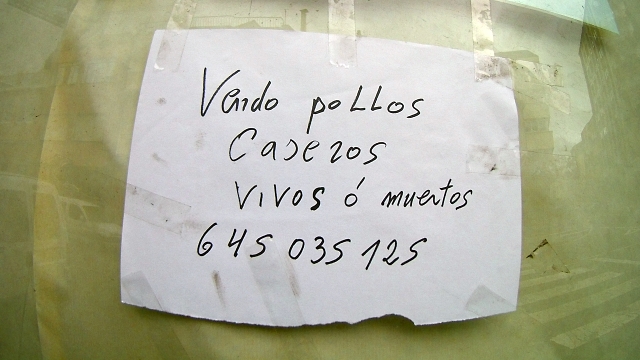 Vendo poLLos
Caseros
VIVOS ó muertos
645 035 125